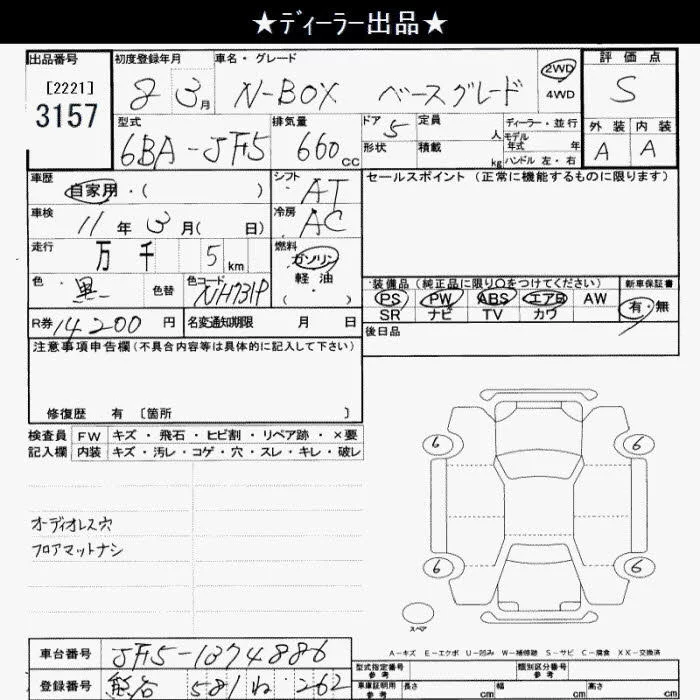 ★ディーラー出品★
出品番号
[2221]
3157
初度登録年月
8 3月
車名・グレード
N-BOX ベースグレード
2WD
4WD
評価点
S
外装 内装
A A
型式
6BA-JF5
排気量
660cc
ドア 5
形状
定員 人
積載 kg
ディーラー・並行
モデル年式 年
ハンドル 左・右
車歴
自家用・( )
シフト
AT
車検
11年3月( 日)
冷房
AC
走行
万 千 5 km
燃料
ガソリン
軽油
( ・ )
色
黒
色替
色コード
NH731P
R券 14200円
名変通知期限 月 日
セールスポイント (正常に機能するものに限ります)
装備品 (純正品に限り○をつけてください)
PS PW ABS エアB AW
SR ナビ TV カワ
新車保証書
有・無
後日品
注意事項申告欄(不具合内容等は具体的に記入して下さい)
修復歴 有 〔箇所 〕
検査員記入欄
FW キズ・飛石・ヒビ割・リペア跡・×要
内装 キズ・汚レ・コゲ・穴・スレ・キレ・破レ
オーディオレス穴
フロアマットナシ
6 6
6 6
スペア
A－キズ E－エクボ U－凹み W－補修跡 S－サビ C－腐食 XX－交換済
車台番号 JF5-1374886
登録番号 熊谷 581 ね 262
型式指定番号 参考
類別区分番号 参考
車庫証明用 参考 長さ cm 幅 cm 高さ cm